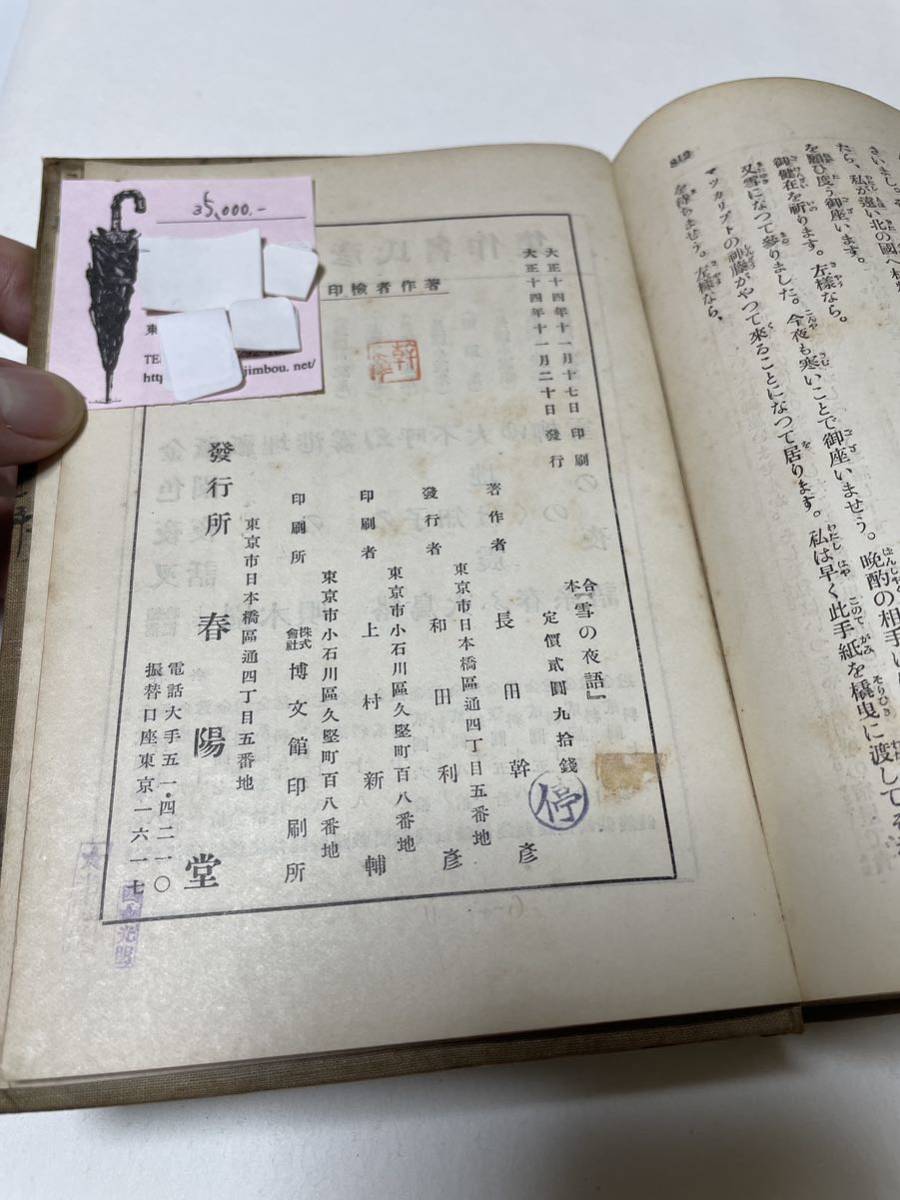 35,000.-
東
TEL
http
jimbou.net/
著作者檢印
大正十四年十一月十七日印刷
大正十四年十一月二十日發行
合本『雪の夜語』
定價貳圓九拾錢
停
著作者 長田幹彦
東京市日本橋區通四丁目五番地
發行者 和田利彦
東京市小石川區久堅町百八番地
印刷者 上村新輔
東京市小石川區久堅町百八番地
印刷所 株式會社 博文館印刷所
東京市日本橋區通四丁目五番地
發行所 春陽堂
電話大手五一・四二一〇
振替口座東京一六一一七
812
たら、私が遠い北の國へ
を願ひ度う御座います。
御健在を祈ります。左樣なら。
又雪になつて參りました。今夜も寒いことで御座いませう。晩酌の相手に
マツカリプトの神藤がやつて來ることになつて居ります。私は早く此手紙を橇曳に渡して
を待ちませう。左樣なら、